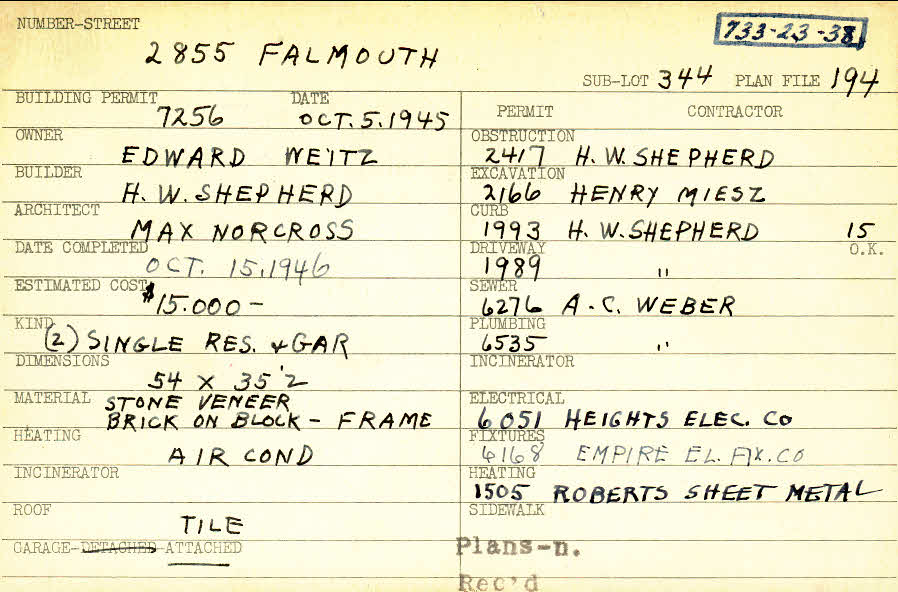 NUMBER-STREET
733-23-38
2855 FALMOUTH
SUB-LOT 344 PLAN FILE 194
BUILDING PERMIT DATE
7256 OCT. 5. 1945
OWNER
EDWARD WEITZ
BUILDER
H. W. SHEPHERD
ARCHITECT
MAX NORCROSS
DATE COMPLETED
OCT. 15, 1946
ESTIMATED COST
$15.000 —
KIND
(2) SINGLE RES. & GAR
DIMENSIONS
54 X 35'2
MATERIAL STONE VENEER
BRICK ON BLOCK - FRAME
HEATING
AIR COND
INCINERATOR
ROOF
TILE
GARAGE-DETACHED-ATTACHED
PERMIT CONTRACTOR
OBSTRUCTION
2417 H. W. SHEPHERD
EXCAVATION
2166 HENRY MIESZ
CURB
1993 H. W. SHEPHERD 15
DRIVEWAY O.K.
1989 "
SEWER
6276 A. C. WEBER
PLUMBING
6535 "
INCINERATOR
ELECTRICAL
6051 HEIGHTS ELEC. CO
FIXTURES
6168 EMPIRE EL. FIX. CO
HEATING
1505 ROBERTS SHEET METAL
SIDEWALK
Plans-n.
Rec'd